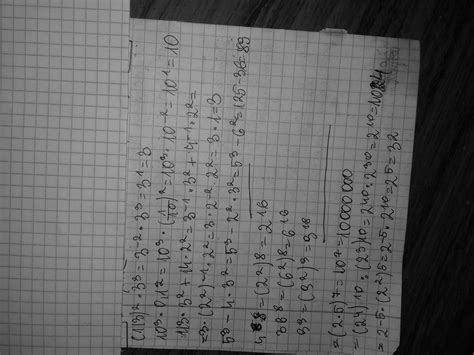 (1/3)² · 3³ = 3⁻² · 3³ = 3¹ = 3
10³ · 0,1² = 10³ · (1/10)² = 10³ · 10⁻² = 10¹ = 10
1/3 · 3² + 1/4 · 2² = 3⁻¹ · 3² + 4⁻¹ · 2² =
=3 · (2²)⁻¹ · 2² = 3 · 2⁻² · 2² = 3 · 1 = 3
5³ - 4 · 3² = 5³ - 2² · 3² = 5³ - 6² = 125 - 36 = 89
4⁸ = (2²)⁸ = 2¹⁶
36⁸ = (6²)⁸ = 6¹⁶
= (3²)⁹ = 3¹⁸
= (2·5)⁷ = 10⁷ = 10000000
= (2⁴)¹⁰ : (2³)¹⁰ = 2⁴⁰ : 2³⁰ = 2¹⁰ = 1024
= 2⁻⁵ · (2²)⁵ = 2⁻⁵ · 2¹⁰ = 2⁵ = 32